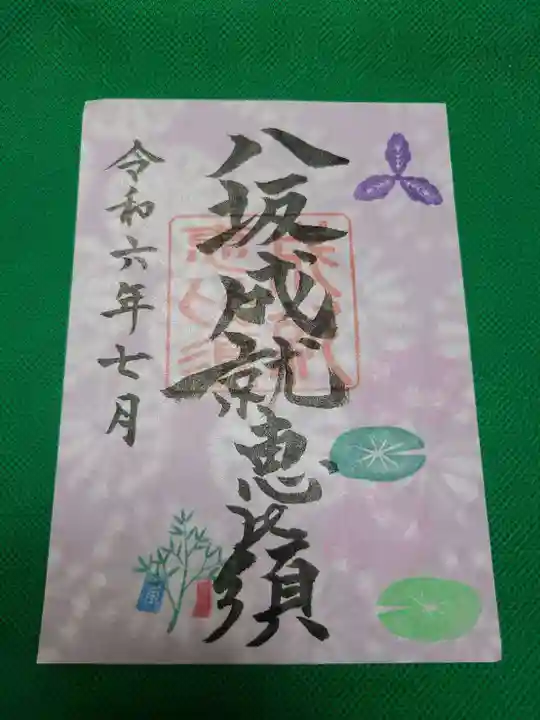 八坂成就恵比須
令和六年七月